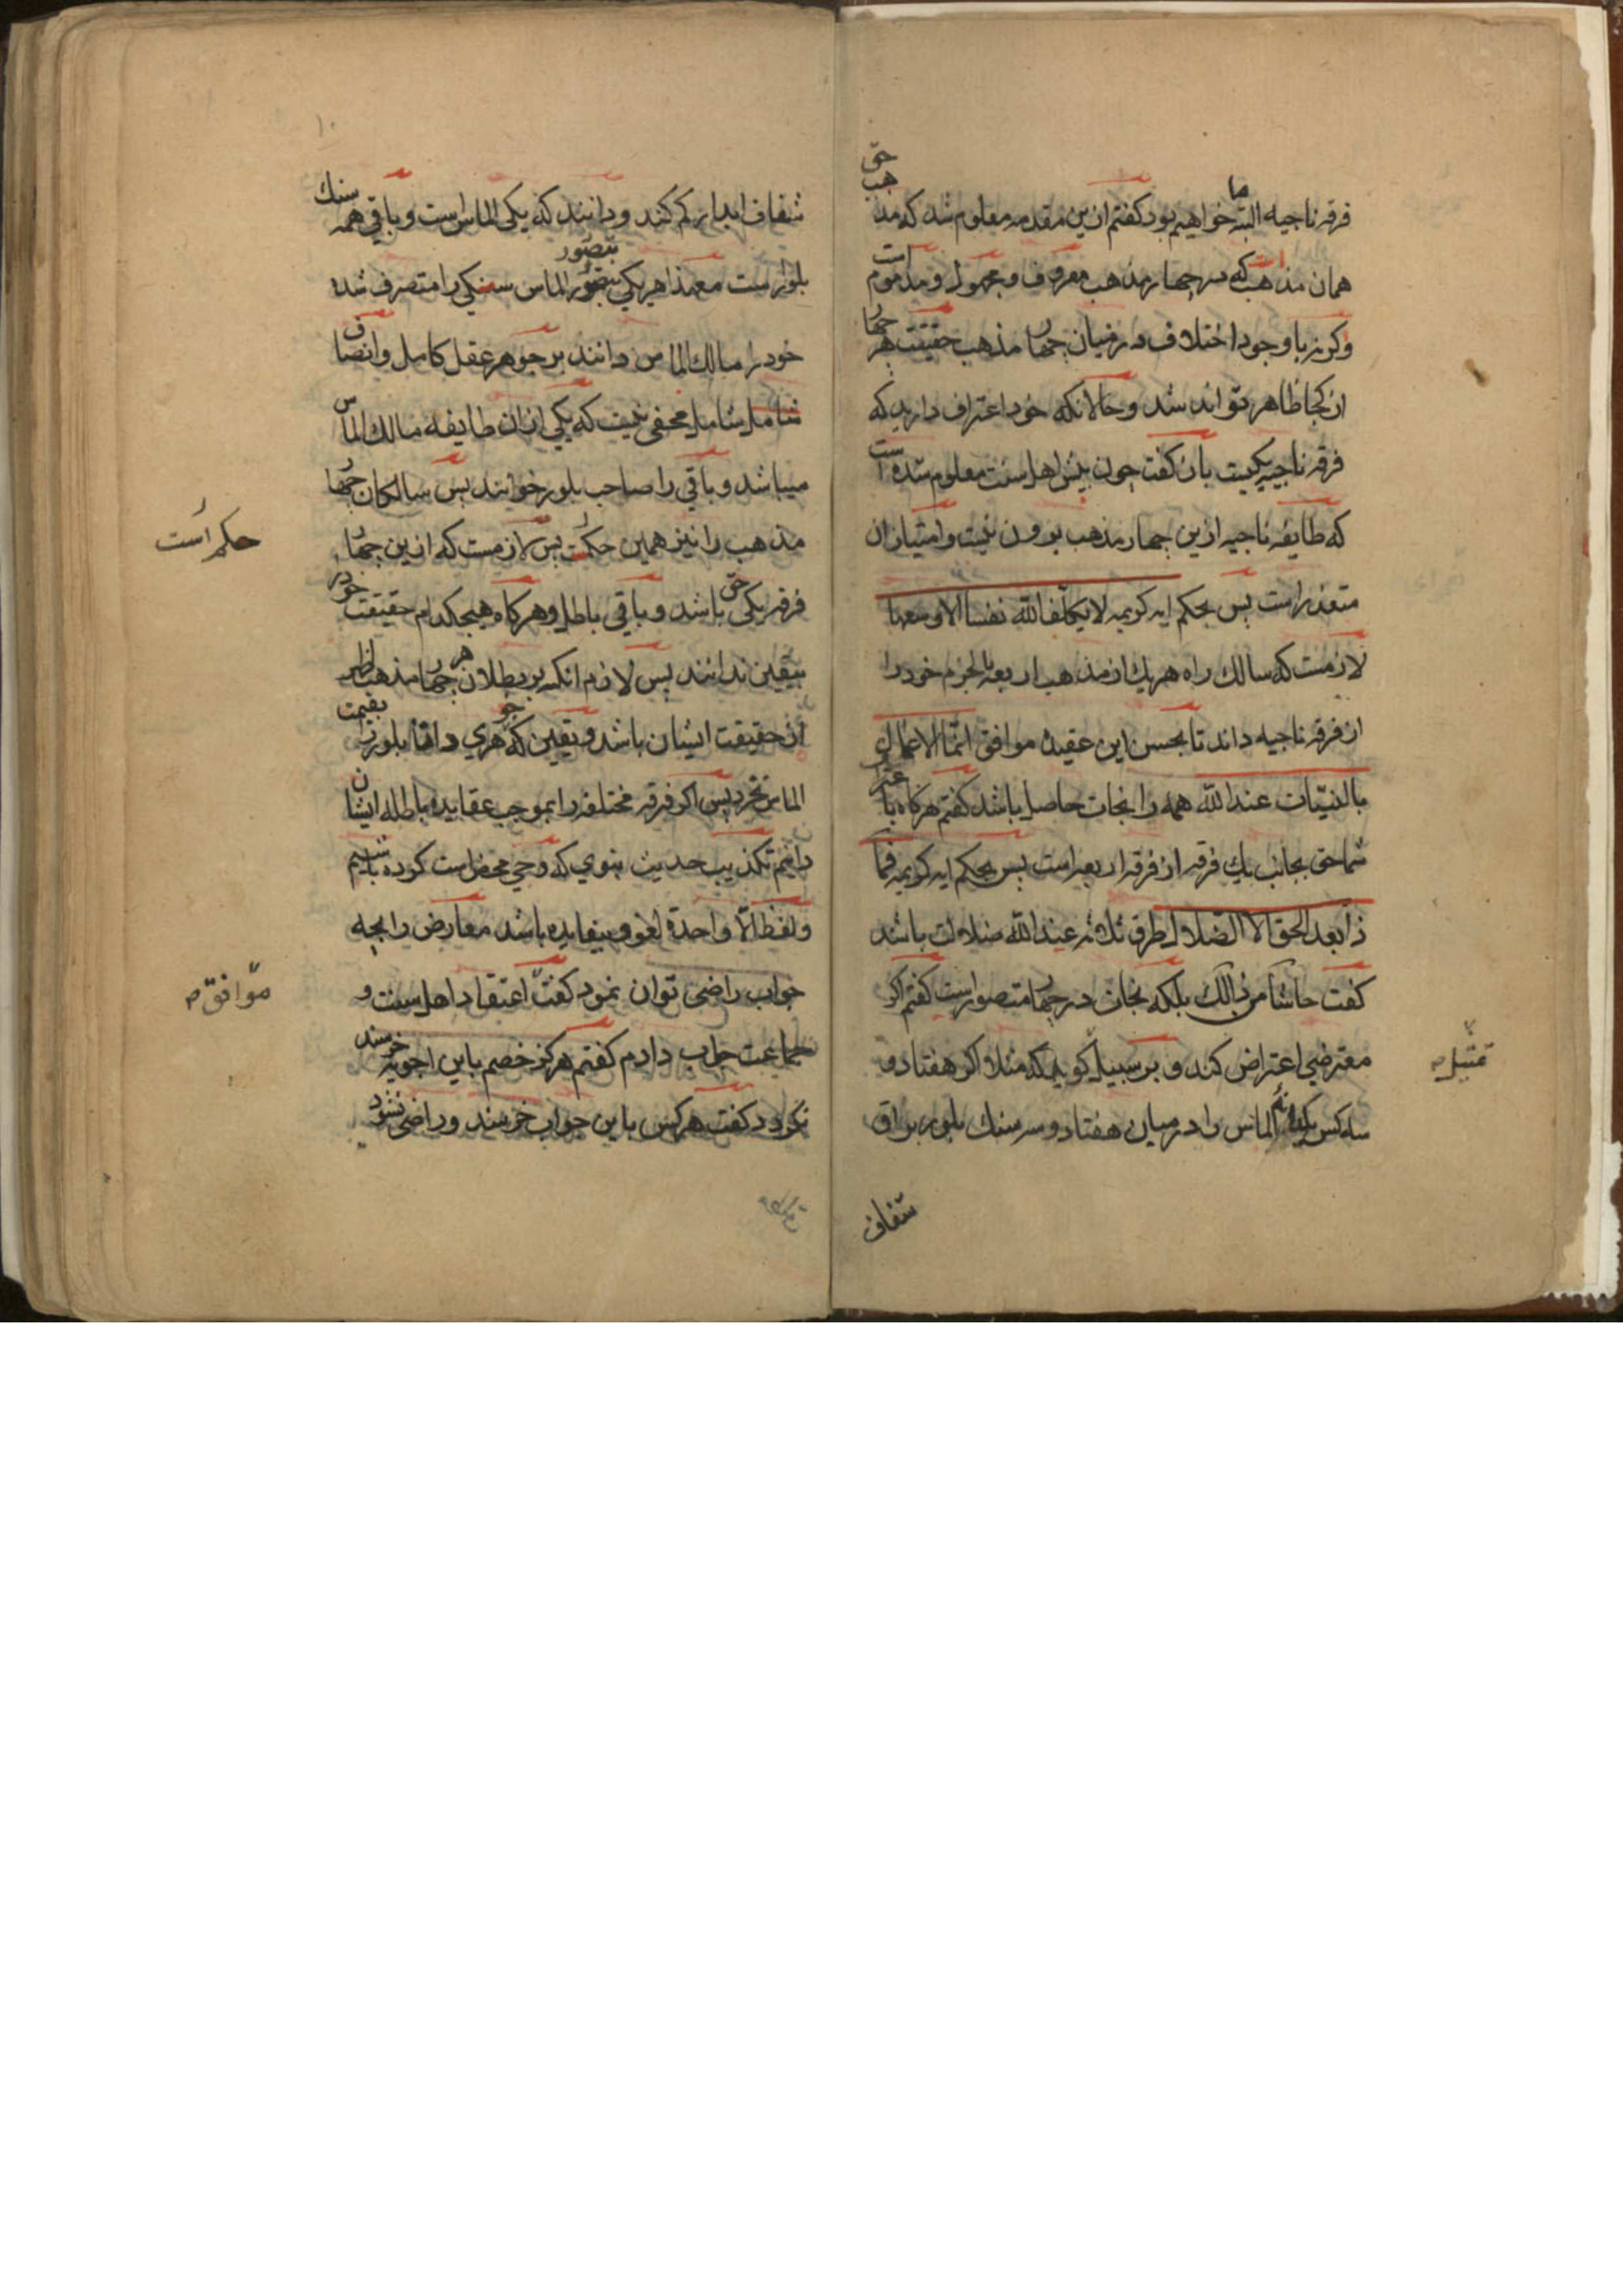 فرقه ناجیه البته ما خواهیم بود کفتم ازین مقدمه معلوم شد که مذهب حق
همان مذهب است که سر چهار مذهب معروف و مجهول و مذموم است
وکرنه با وجود اختلاف در میان چهار مذهب حقیقت هر چهار
از کجا ظاهر تواند شد و حالانکه خود اعتراف دارید که
فرقه ناجیه یکیست بازکفت چون پیش اهل سنت معلوم شده است
که طایفه ناجیه ازین چهار مذهب بیرون نیست و امتیاز ان
متعذر است پس بحکم ایه کریمه لایکلف الله نفسا الا وسعها
لازمست که سالک راه هریک از مذهب اربعه بالجزم خود را
از فرقه ناجیه داند تا بحسن این عقیده موافق انما الاعمال
بالنیّات عند الله همه را نجات حاصل باشد کفتم هرکاه باعتراف
شما حق بجانب یک فرقه از فرقه اربعه است پس بحکم ایه کریمه فما
ذا بعد الحق الا الضلال طرق ثلاثه عند الله ضلالت باشد
کفت حاشا من ذالک بلکه نجات در چهار متصور است کفتم اکر
معترضی اعتراض کند و بر سبیل کوید که مثلا اکر هفتاد و
تمثیل
سه کس یکدانه الماس را در میان هفتاد و سه سنک بلور براق
شفاف
۱۰
شفاف ابدار کم کنند و دانند که یکی الماس است و باقی همه سنک
بلور است معهذا هریکی بتصور الماس سنکی را متصرف شده
بتصور
خود را مالک الماس دانند بر جوهر عقل کامل و انصاف
شامل مخفی نیست که یکی از ان طایفه مالک الماس
میباشد و باقی را صاحب بلور خوانند پس سالکان چهار
مذهب را نیز همین حکمست پس لازمست که ازین چهار
حکم است
فرقه یکی حق باشد و باقی باطل و هرکاه هیچکدام حقیقت خود را
بیقین ندانند پس لازم انکه بر بطلان هر چهار مذهب اظهر
از حقیقت ایشان باشد و یقین که جوهری دانا بلور را بقیمت
الماس نخرد پس اکر فرقه مختلفه را بموجب عقایده باطله ایشان
دانیم تکذیب حدیث نبوی که وحی محض است کرده باشیم
و لفظ الّا واحدة لغو و بیفایده باشد معارض را بچه
جواب راضی توان نمود کفت اعتقاد اهل سنت و
موافق
جماعت جواب دادم کفتم هرکز خصم باین اجوبه خرسند
نکردد کفت هرکس باین جواب خرسند و راضی نشود